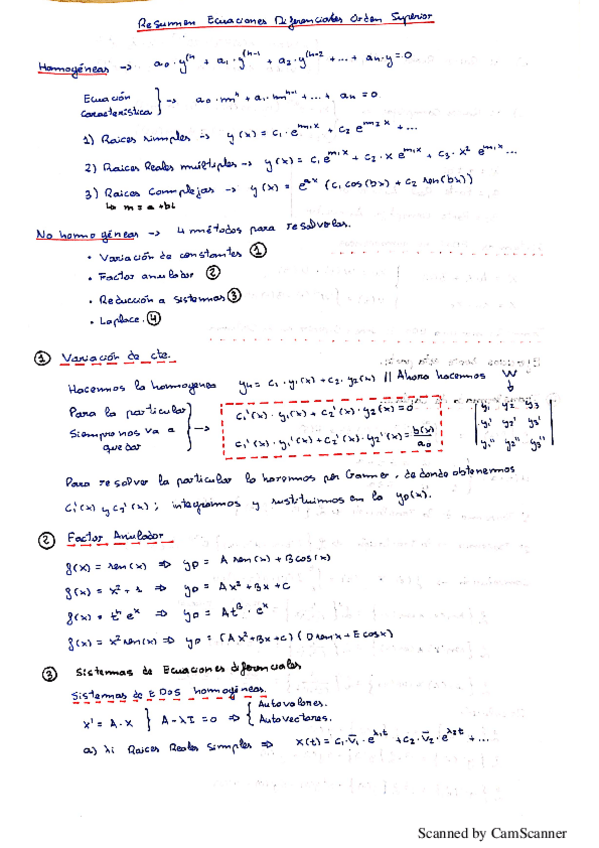 Resumen Ecuaciones Diferenciales Orden Superior
Homogéneas -> a₀·y⁽ⁿ + a₁·y⁽ⁿ⁻¹ + a₂·y⁽ⁿ⁻² + ... + aₙ·y = 0
Ecuación característica } -> a₀·mⁿ + a₁·mⁿ⁻¹ + ... + aₙ = 0
1) Raices simples -> y(x) = c₁·e^(m₁x) + c₂ e^(m₂x) + ...
2) Raices Reales multiples -> y(x) = c₁ e^(m₁x) + c₂·x e^(m₁x) + c₃·x² e^(m₁x) ...
3) Raices Complejas -> y(x) = e^(ax) (c₁ cos(bx) + c₂ sen(bx))
↳ m = a + bi
No homogéneas -> 4 métodos para resolverlas.
• Variación de constantes ①
• Factor anulador ②
• Reducción a sistemas ③
• Laplace. ④
① Variación de cte.
Hacemos la homogenea yₕ = c₁·y₁(x) + c₂·y₂(x) // Ahora hacemos W
Para la particular siempre nos va a quedar } ->
c₁'(x)·y₁(x) + c₂'(x)·y₂(x) = 0
c₁'(x)·y₁'(x) + c₂'(x)·y₂'(x) = b(x)/a₀
| y₁ y₂ y₃ |
| y₁' y₂' y₃' |
| y₁'' y₂'' y₃'' |
Para resolver la particular lo haremos por, de donde obtenemos
c₁'(x) y c₂'(x); integramos y sustituimos en la yp(x).
② Factor Anulador
g(x) = sen(x) => yp = A sen(x) + B cos(x)
g(x) = x² + 1 => yp = Ax² + Bx + C
g(x) = tⁿ eˣ => yp = At^B · eˣ
g(x) = x² sen(x) => yp = (Ax² + Bx + C) (D sen x + E cos x)
③ Sistemas de Ecuaciones diferenciales
Sistemas de EDOs homogéneas.
x' = A·x } A - λI = 0 => { Autovalores. Autovectores.
a) λi Raices Reales Simples => x(t) = c₁·v̄₁·e^(λ₁t) + c₂·v̄₂·e^(λ₂t) + ...
Scanned by CamScanner